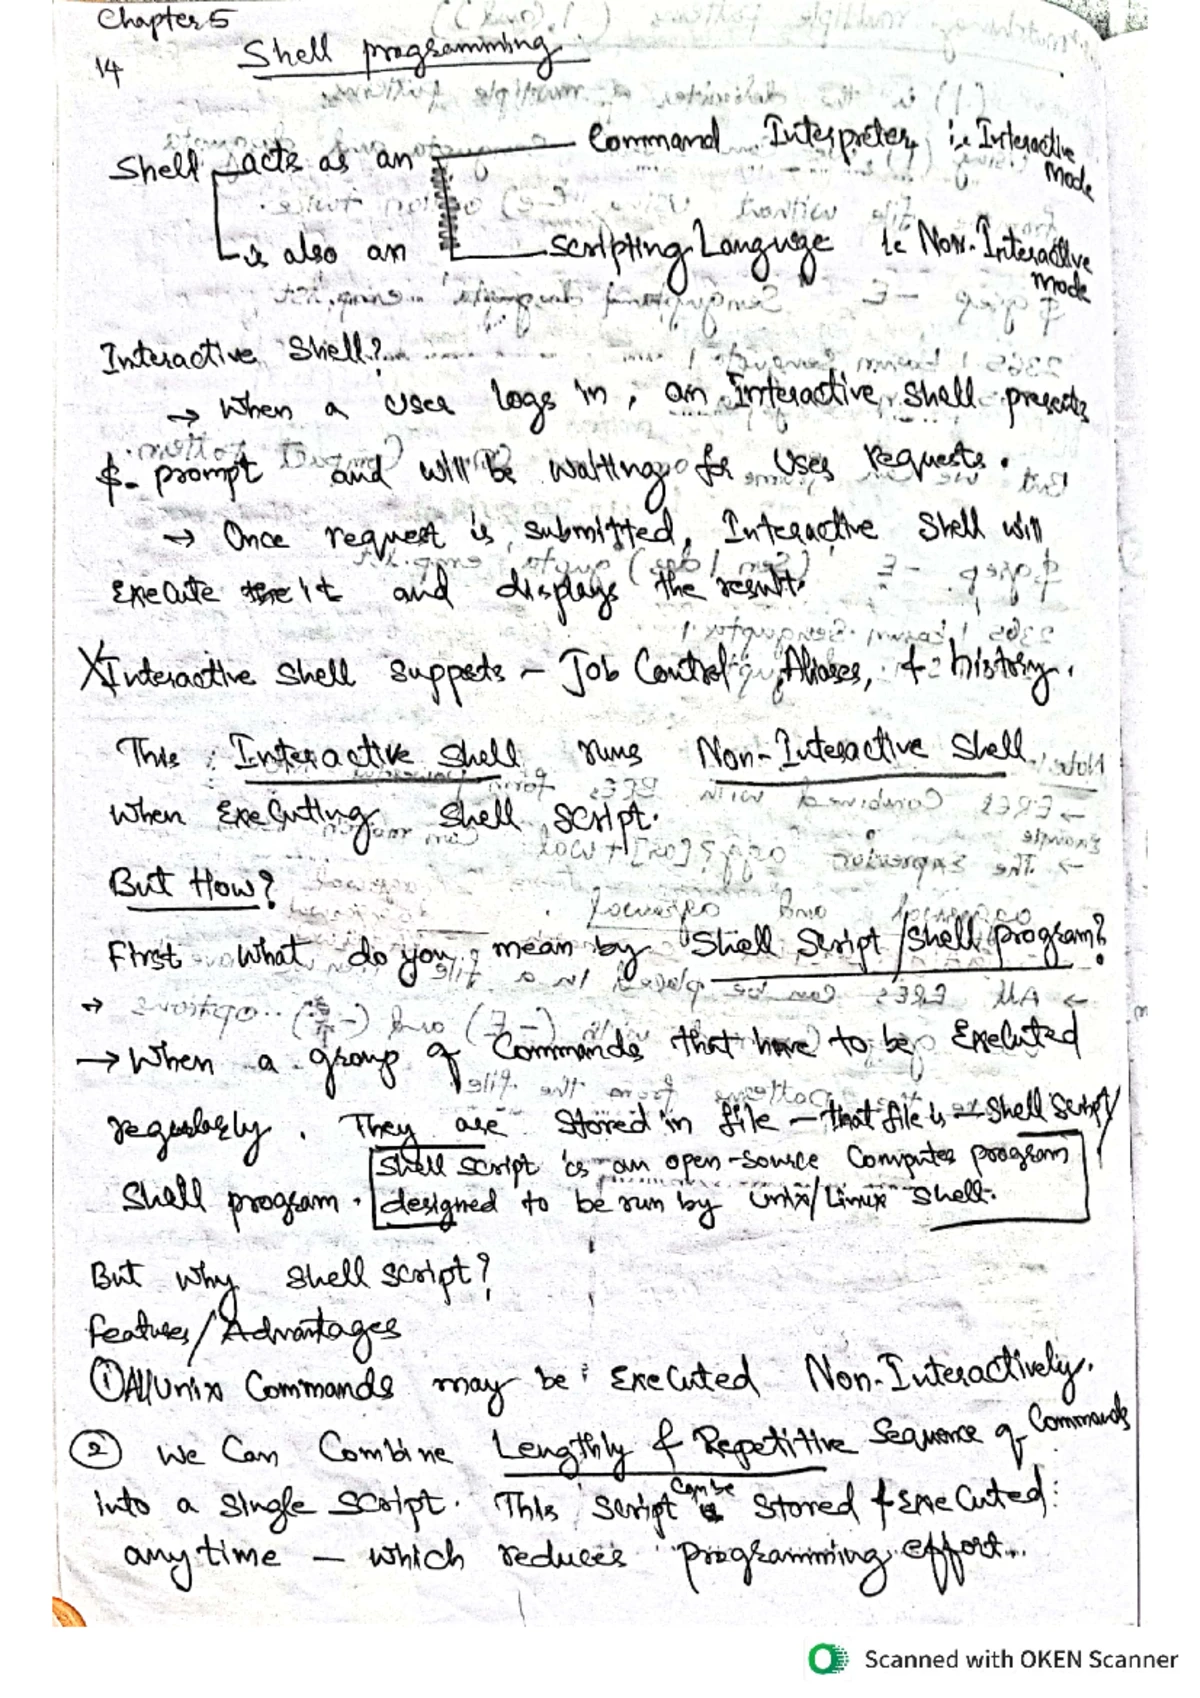 Chapter 5
14 Shell programming
Shell acts as an Command Interpreter i.e Interactive Mode
is also an scripting Language ie Non-Interactive Mode
Interactive Shell?
→ When a user logs in, an Interactive Shell presents
$ - prompt and will be waiting for User requests.
→ Once request is submitted, Interactive Shell will
Execute it and displays the result.
Interactive Shell Supports - Job Control, Aliases, & history.
This Interactive Shell runs Non-Interactive Shell
When Executing Shell Script.
But How?
First What do you mean by Shell Script/shell program?
→ When a group of Commands that have to be Executed
regularly. They are stored in file - that file is - Shell Script/
Shell program. Shell script is an open-source Computer program
designed to be run by Unix/Linux Shell.
But why Shell script?
Features/Advantages
① All Unix Commands may be Executed Non-Interactively.
② We Can Combine Lengthly & Repetitive Sequence of Commands
into a single script. This script can be stored & executed
any time - which reduces programming effort..
Scanned with OKEN Scanner